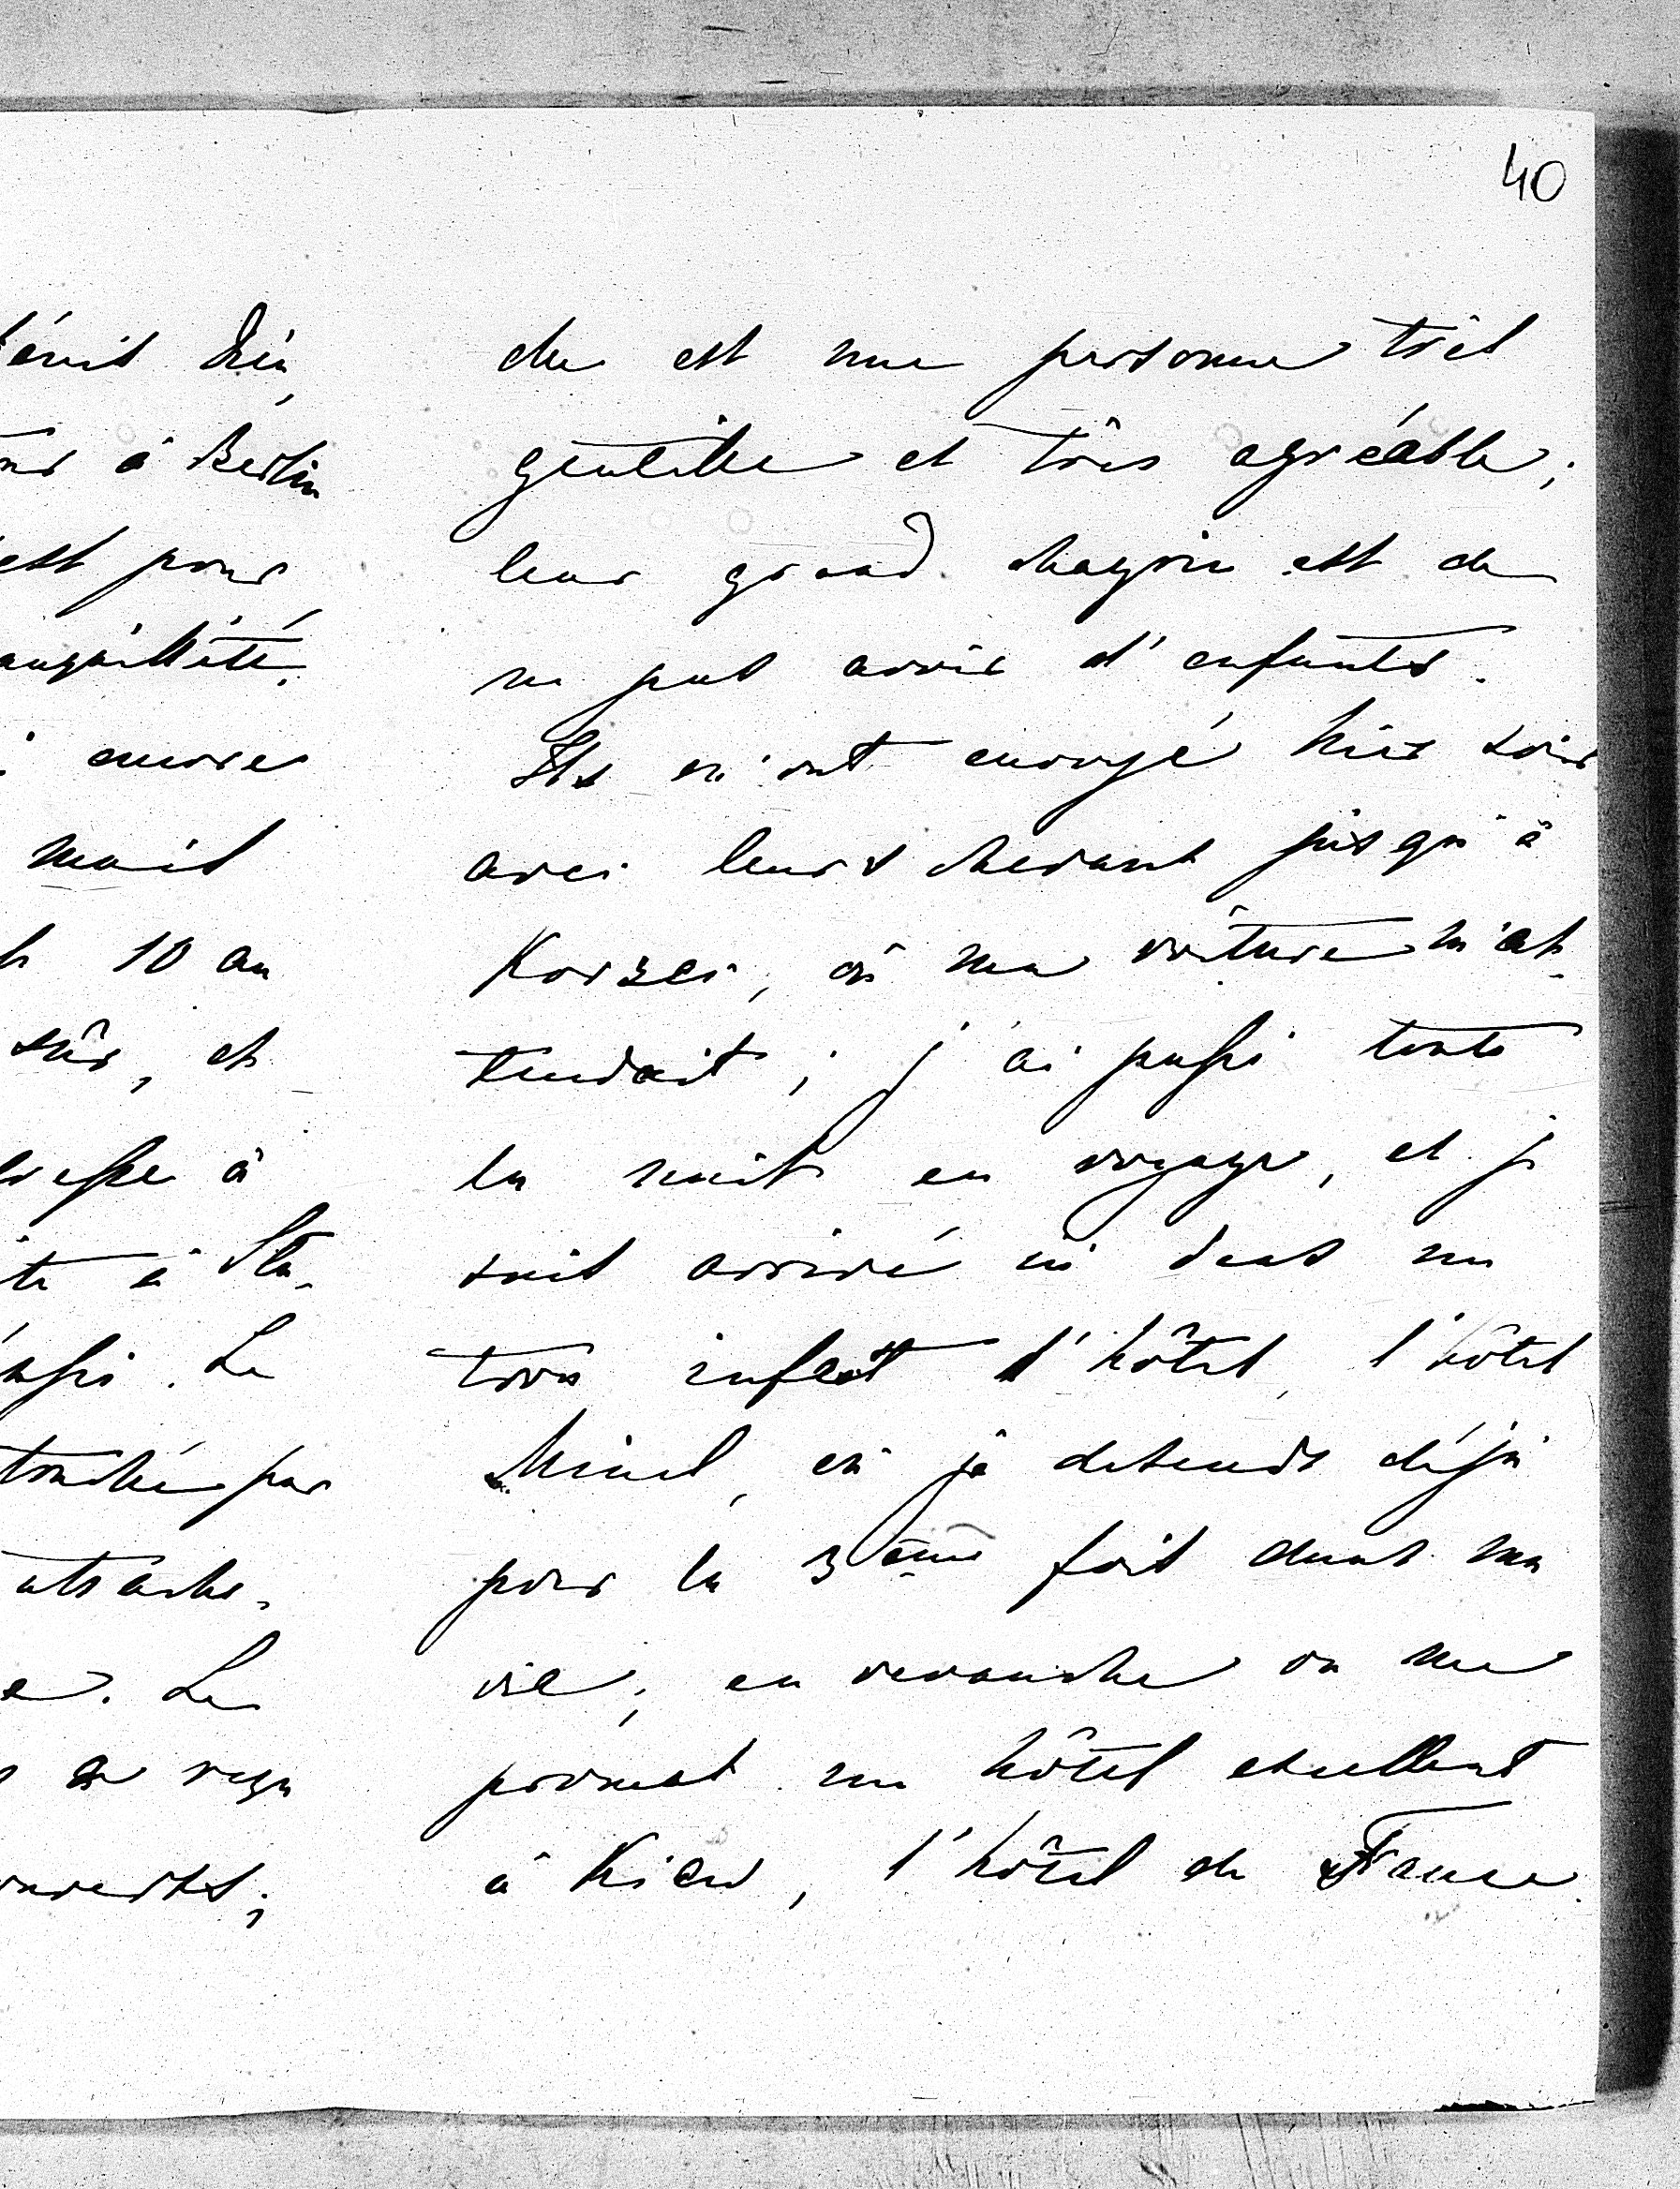 40
bénit Dieu,
à Berlin
est pour
anquillité.
encore
mais
10 au
sûr, et
esse à
à Sta-
. Le
touché par
attaché-
. Le
a reçu
;
elle est une personne très
gentille et très agréable;
leur grand chagrin est de
ne pas avoir d'enfants.
Ils m'ont envoyé hier soir
avec leurs chevaux jusqu'à
Korzec, où ma voiture m'at-
tendait; j'ai passé toute
la nuit en voyage, et je
suis arrivé ici dans un
trou infect d'hôtel, l'hôtel
où je descends déjà
pour la 3ème fois dans ma
vie; en revanche on me
promet un hôtel excellent
à Kiew, l'hôtel de France.